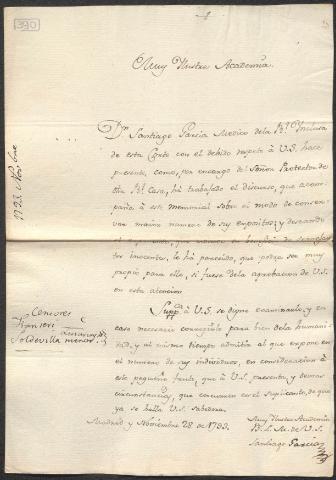 390
Muy Ilustre Academia.
Dn. Santiago Garcia Medico de la Rl. Inclusa
de esta Corte con el debido respeto à V.S. hace
presente, como, por encargo del Señor Protector de
dha Rl. Casa, ha trabajado el discurso, que acom-
paña à este memorial sobre el modo de conser-
var maior numero de sus expositos; y deseando
inocentes, le ha parecido, que podra ser muy
propio para ello, si fuese de la aprobacion de V.S.
en esta atencion
Suppca. à V.S. se digne examinarlo, y en
caso necesario corregirlo para bien de la humani-
dad, y al mismo tiempo admitir al que expone en
el numero de sus individuos, en consideracion à
este pequeño fruto, que à V.S. presenta, y demas
circunstancias, que concurren en el suplicante, de que
ya se halla V.S. sabedora.
Madrid y Noviembre 28 de 1793.
Muy Ilustre Academia
B. L. M. de V.S.
Santiago Garcia
Censores
Soldevilla